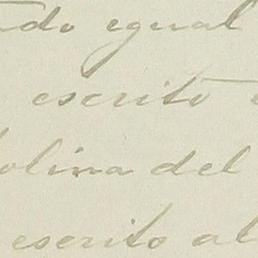 do egual
escrito
olina del
escrito al